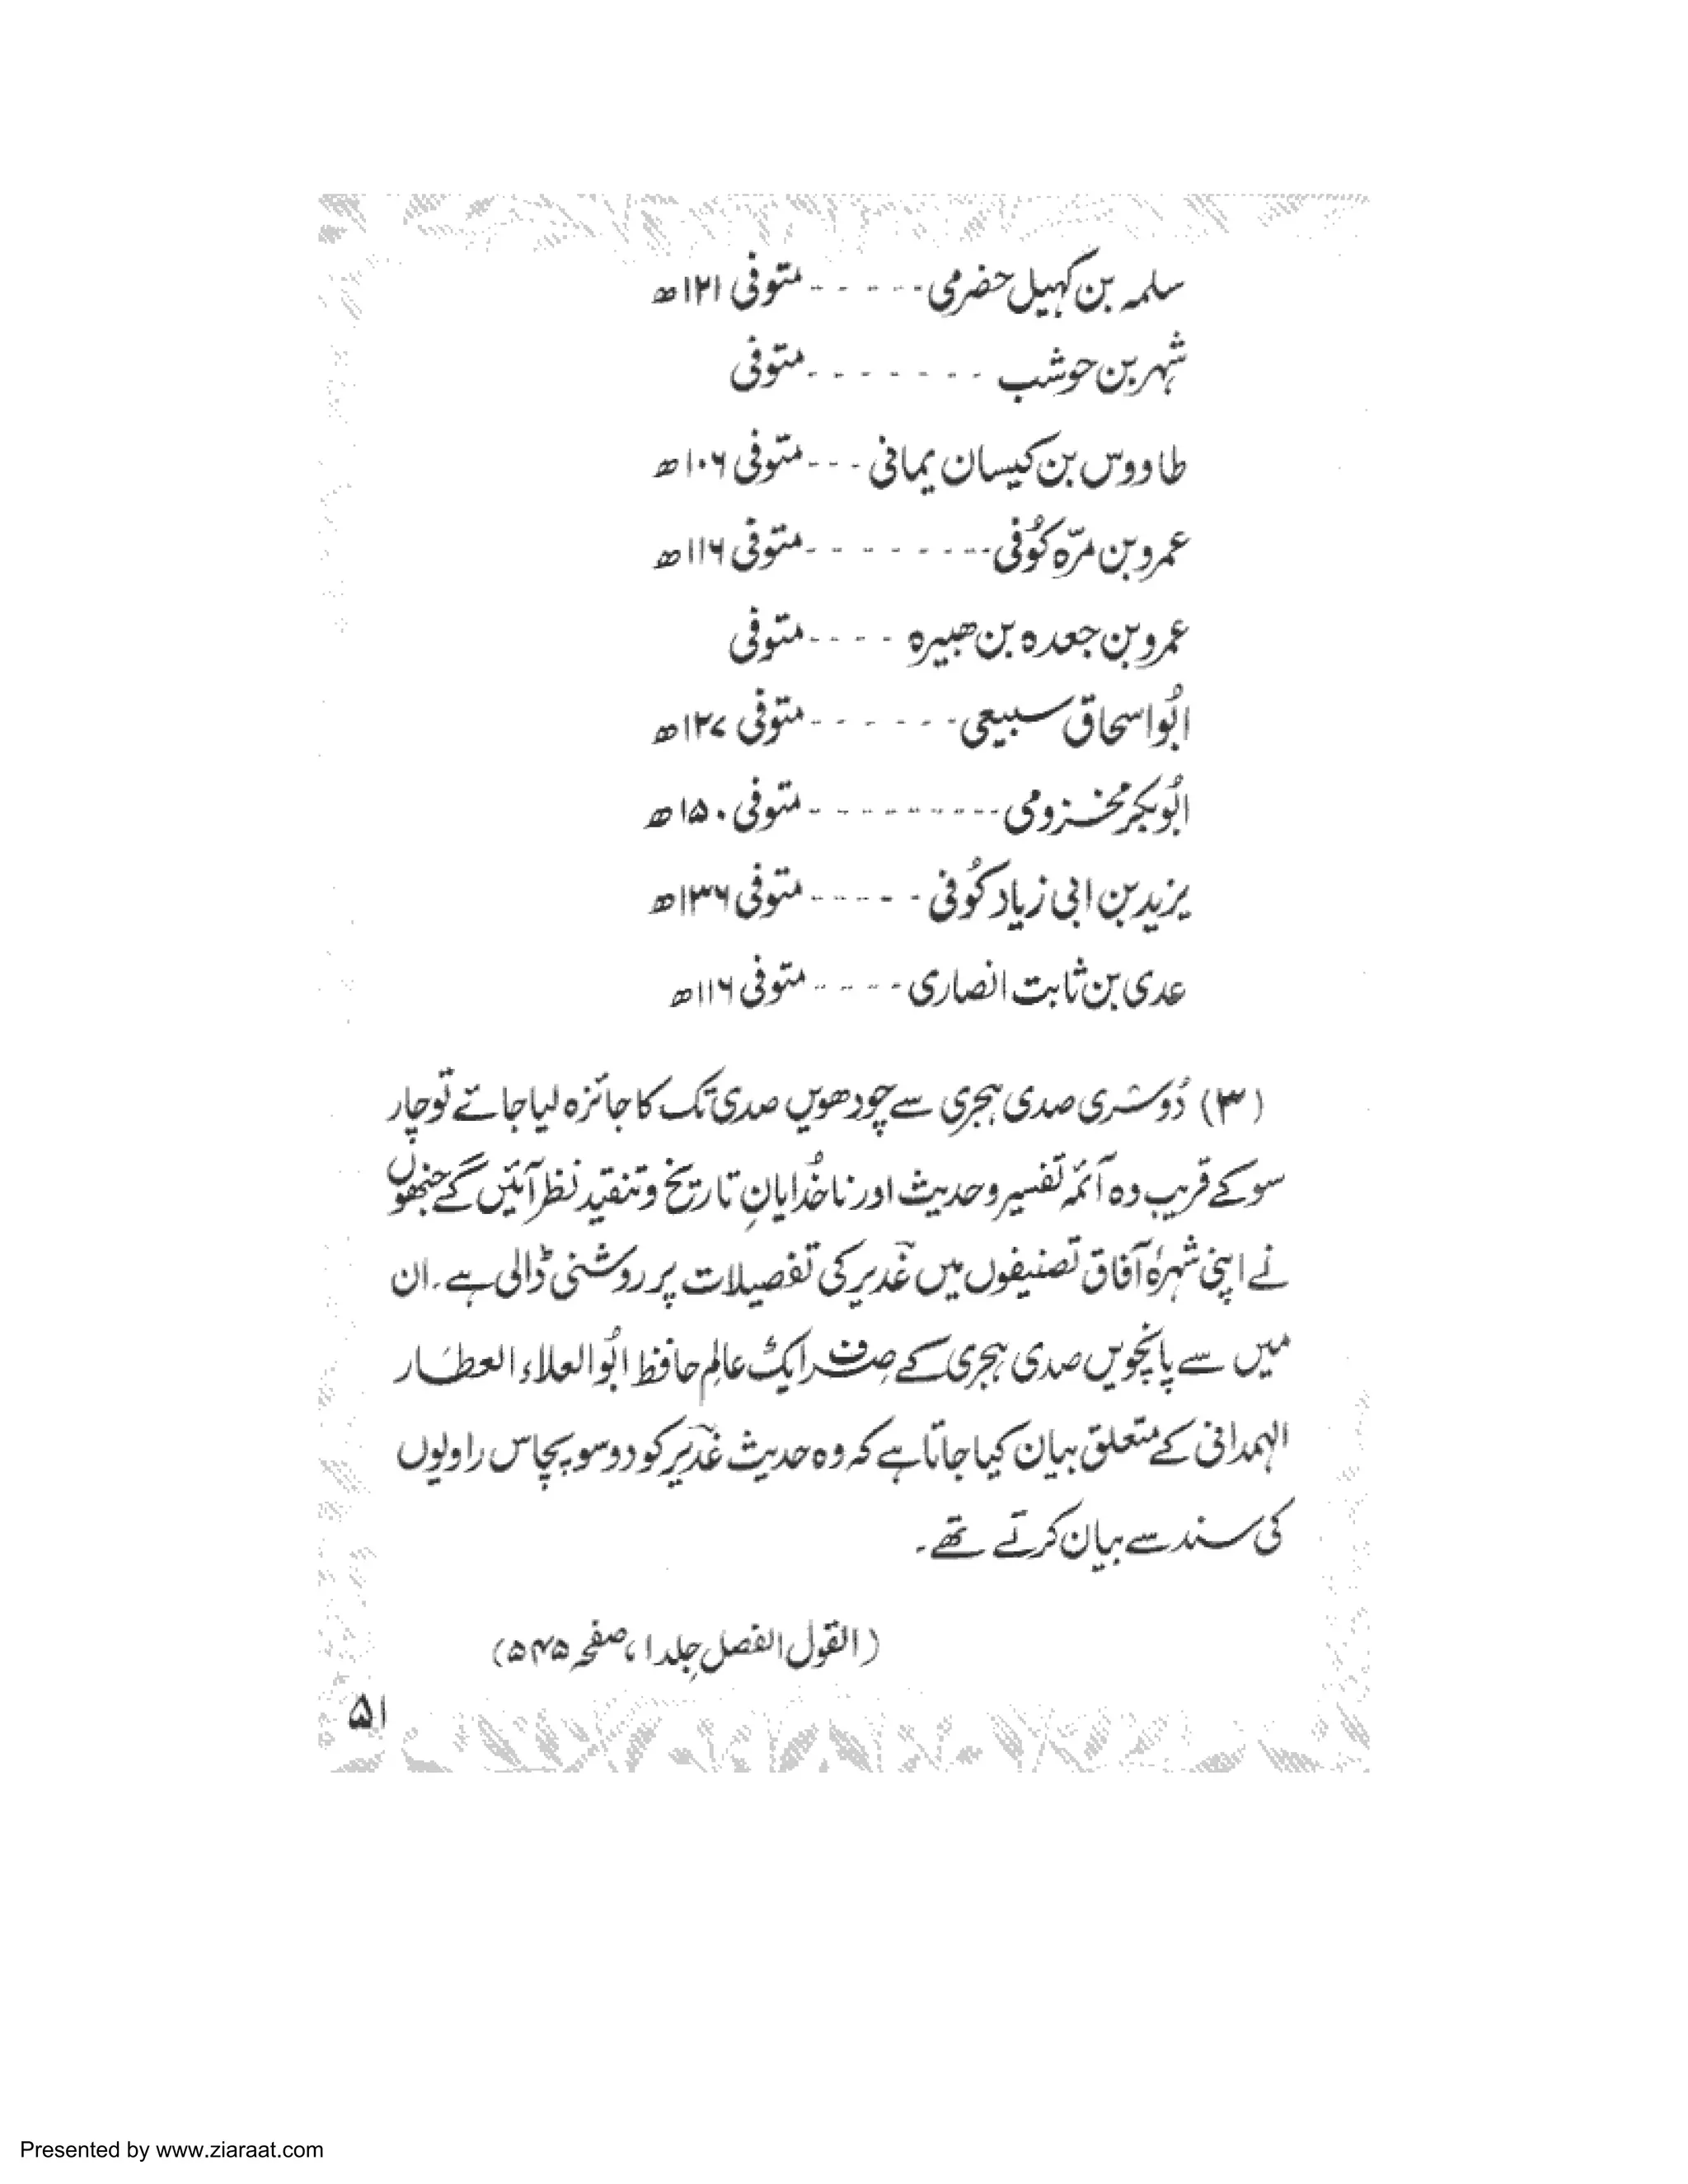 سلمہ بن کہیل حضرمی - - - - - - متوفی ۱۲۱ھ
شہر بن حوشب - - - - - - - متوفی
طاووس بن کیسان یمانی - - - متوفی ۱۰۶ھ
عمرو بن مرّہ کوُفی - - - - - - - - متوفی ۱۱۶ھ
عمرو بن جعدہ بن ھبیرہ - - - - متوفی
ابُو اسحاق سبیعی - - - - - - متوفی ۱۲۷ھ
ابُو بکر مخزومی - - - - - - - - - متوفی ۱۵۰ھ
یزید بن ابی زیاد کوُفی - - - - - - متوفی ۱۳۶ھ
عدی بن ثابت انصاری - - - - - متوفی ۱۱۶ھ
(۳) دُوسری صدی ہجری سے چودھویں صدی تک کا جائزہ لیا جائے تو چار
سو کے قریب وہ آئمہ تفسیر و حدیث اور ناخُدایانِ تاریخ و تنقید نظر آئیں گے جنھوں
نے اپنی شہرۂ آفاق تصنیفوں میں غدیر کی تفصیلات پر روشنی ڈالی ہے۔ ان
میں سے پانچویں صدی ہجری کے صِرف ایک عالِم حافظ ابُو العلاء العطار
الہمدانی کے متعلق بیان کیا جاتا ہے کہ وہ حدیث غدیر کو دو سو پچاس راویوں
کی سند سے بیان کرتے تھے۔
(القول الفصل جِلد ۱، صفحہ ۵۴۵)
۵۱
Presented by www.ziaraat.com